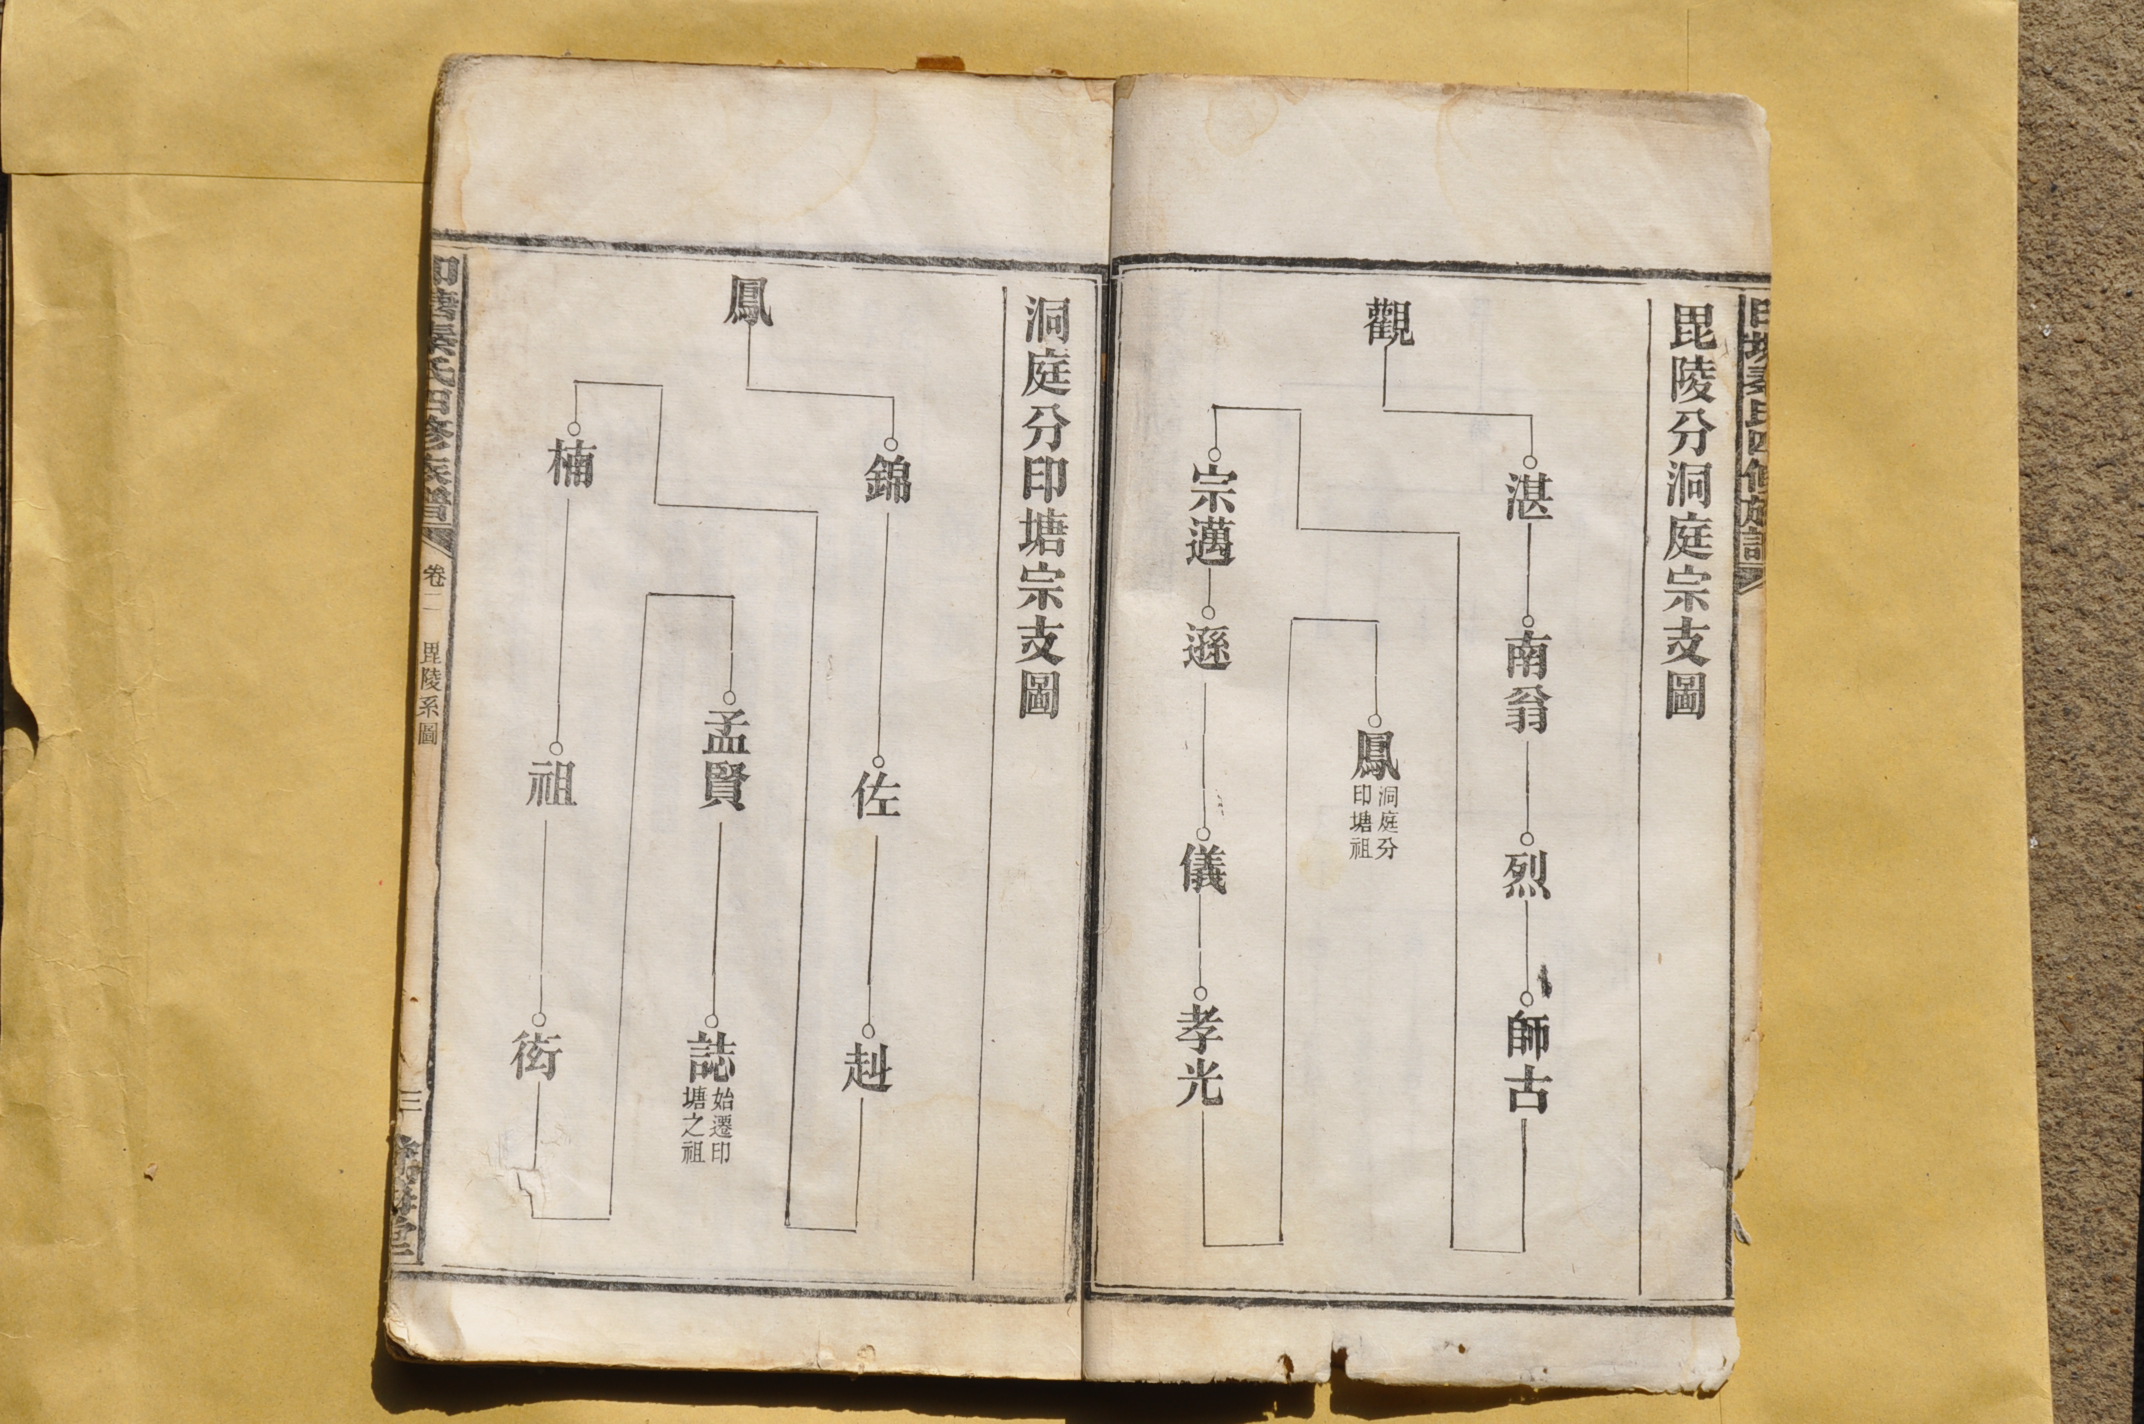 毘陵分洞庭宗支圖
觀
湛
南翁
烈
師古
宗邁
遜
儀
孝光
鳳
洞庭分
印塘祖
洞庭分印塘宗支圖
鳳
錦
佐
赳
楠
祖
衒
孟賢
誌
始遷印
塘之祖
印塘秦氏四修族譜
卷二
毘陵系圖
三